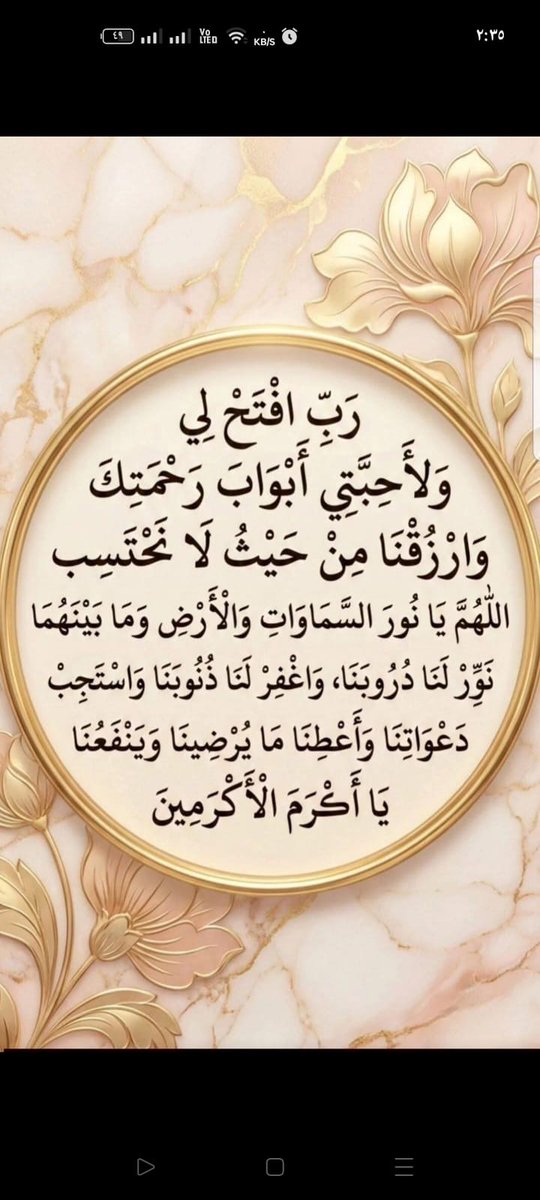 ٤٩
Vo
LTED
KB/S
٢:٣٥
رَبِّ افْتَحْ لِي
وَلأَحِبَّتِي أَبْوَابَ رَحْمَتِكَ
وَارْزُقْنَا مِنْ حَيْثُ لَا نَحْتَسِب
اللَّهُمَّ يَا نُورَ السَّمَاوَاتِ وَالْأَرْضِ وَمَا بَيْنَهُمَا
نَوِّرْ لَنَا دُرُوبَنَا، وَاغْفِرْ لَنَا ذُنُوبَنَا وَاسْتَجِبْ
دَعْوَاتِنَا وَأَعْطِنَا مَا يُرْضِينَا وَيَنْفَعُنَا
يَا أَكْرَمَ الْأَكْرَمِينَ